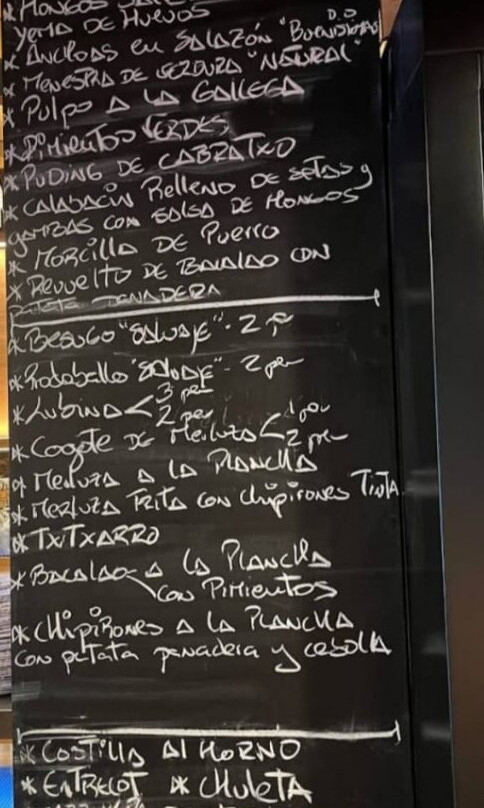 * HONGOS
YEMA DE HUEVOS
D.O
* ANCHOAS EN SALAZÓN "BUENDIMAS
* MENESTRA DE VERDURA "NATURAL"
* PULPO A LA GALLEGA
* PIMIENTOS VERDES
* PUDING DE CABRATXO
* CALABACIN RELLENO DE SETAS Y
GAMBAS CON SALSA DE HONGOS
* MORCILLA DE PUERRO
* REVUELTO DE BACALAO CON
PATATA PANADERA
* BESUGO "SALVAJE" - 2 P
* RODABALLO "SALVAJE" - 2 per
* LUBINA < 3 per
2 per
* COGOTE DE MERLUZA < 1 per
2 per
* MERLUZA A LA PLANCHA
* MERLUZA FRITA CON CHIPIRONES TINTA
* TXITXARRO
* BACALAO A LA PLANCHA
CON PIMIENTOS
* CHIPIRONES A LA PLANCHA
CON patata panadera y cebolla
* COSTILLA AL HORNO
* ENTRECOT * CHULETA